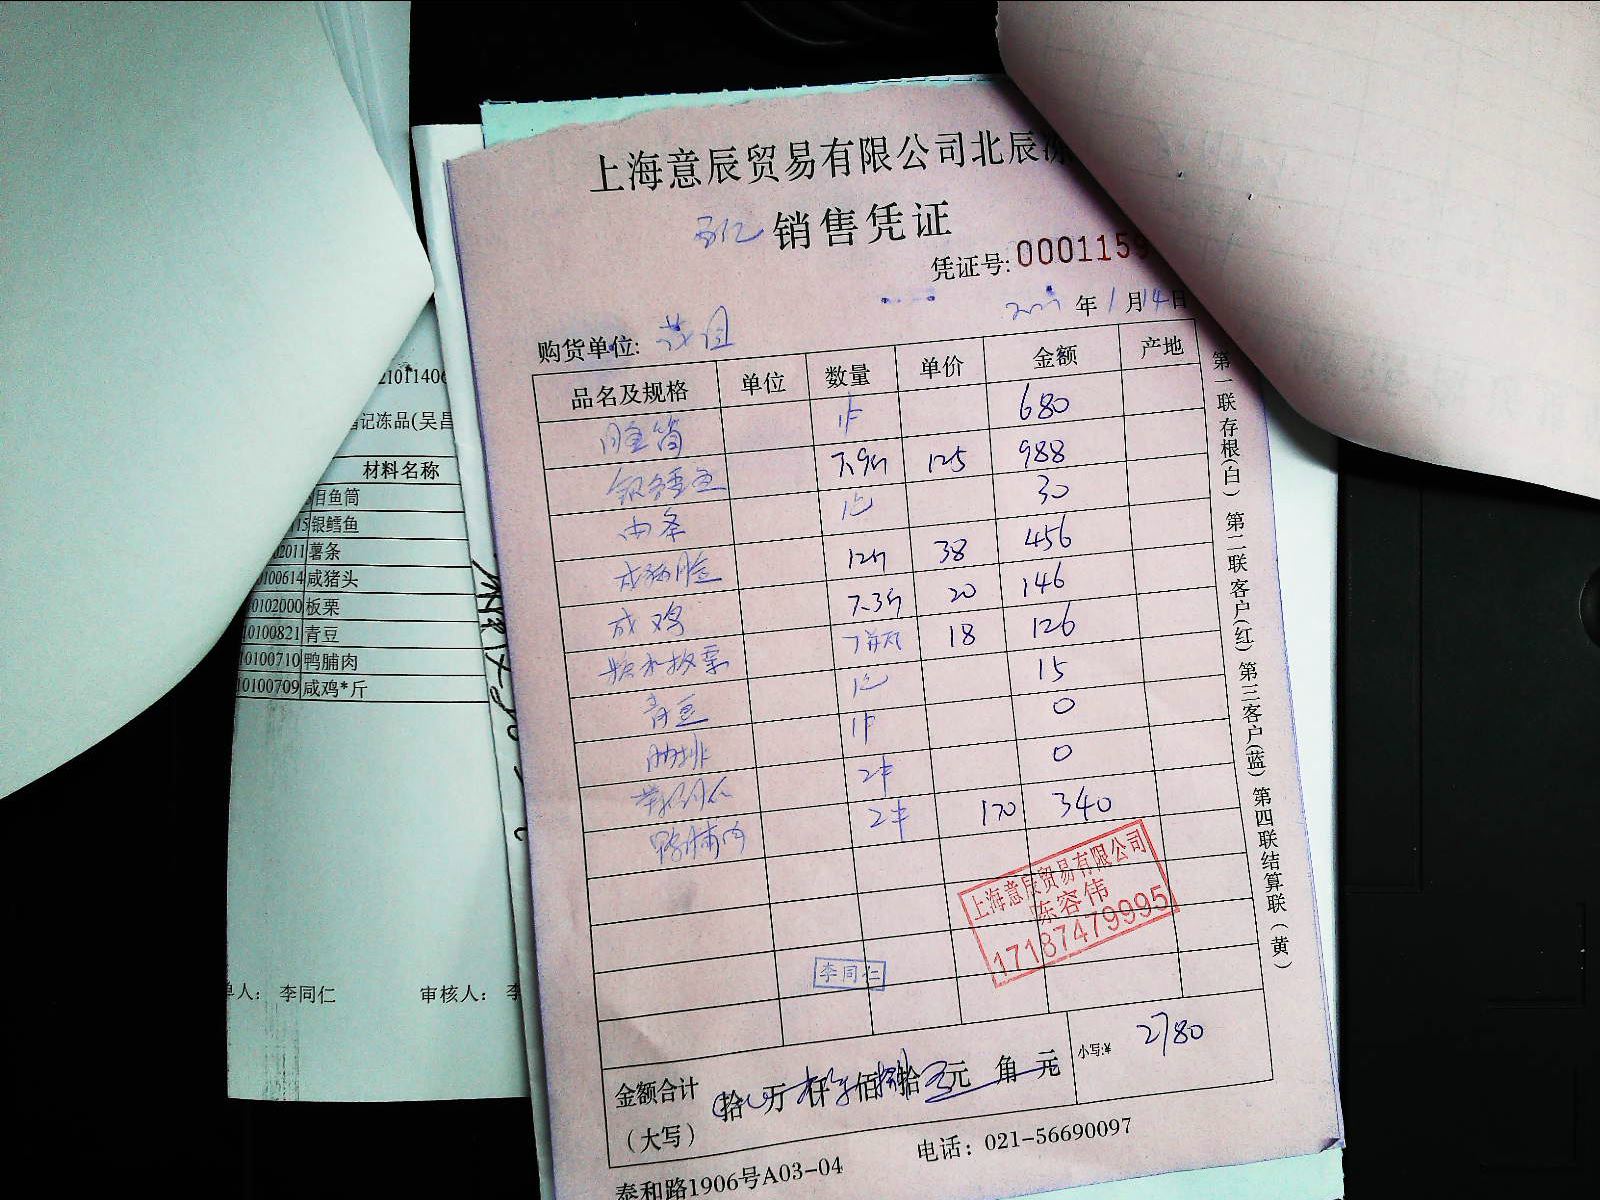 上海意辰贸易有限公司北辰冻
销售凭证
凭证号:
000115
年1月14日
购货单位:
品名及规格 单位 数量 单价 金额 产地
1件 680
银鳕鱼 7.9斤 125 988
30
咸猪脸 12斤 38 456
咸鸡 7.3斤 20 146
糖水板栗 18 126
青豆 15
肋排 1件 0
0
鸭脯肉 170 340
上海意辰贸易有限公司
陈容伟
17187479995
李同仁
金额合计
(大写)
拾 万 仟 佰 拾 元 角 元
小写:¥ 2780
泰和路1906号A03-04
电话：021-56690097
第一联存根(白) 第二联客户(红) 第三客户(蓝) 第四联结算联(黄)
21011406
记冻品(吴昌
材料名称
目鱼筒
15 银鳕鱼
02011 薯条
0100614 咸猪头
0102000 板栗
10100821 青豆
10100710 鸭脯肉
10100709 咸鸡*斤
单人： 李同仁
审核人： 李